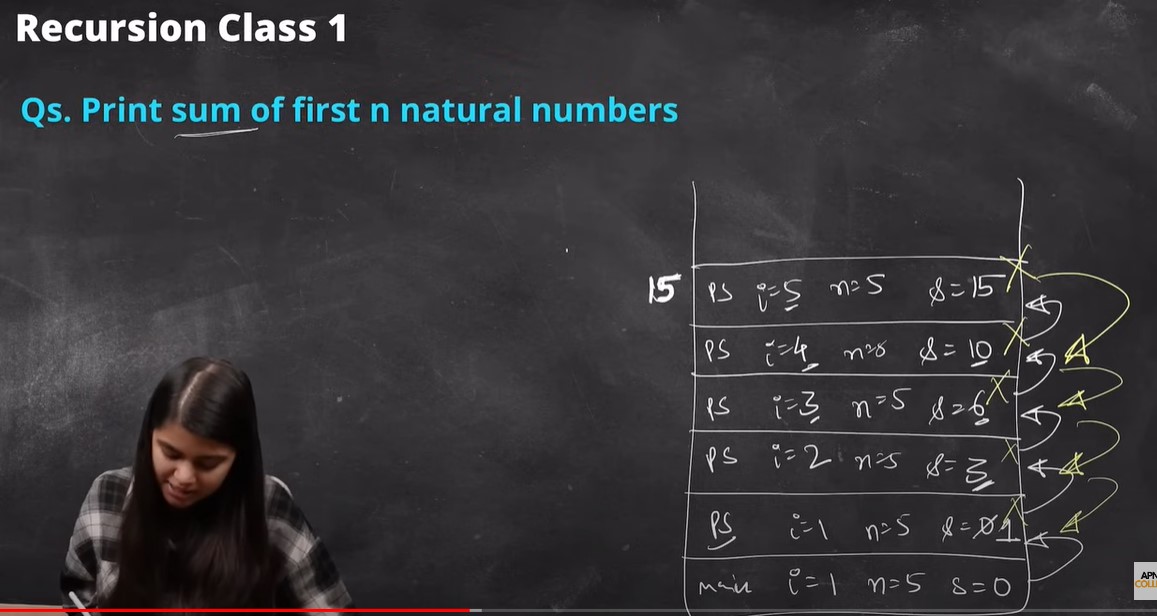 Recursion Class 1
Qs. Print sum of first n natural numbers
15 PS i=5 n=5 s=15
PS i=4 n=5 s=10
PS i=3 n=5 s=6
PS i=2 n=5 s=3
PS i=1 n=5 s=0 1
main i=1 n=5 s=0
APN
COLL